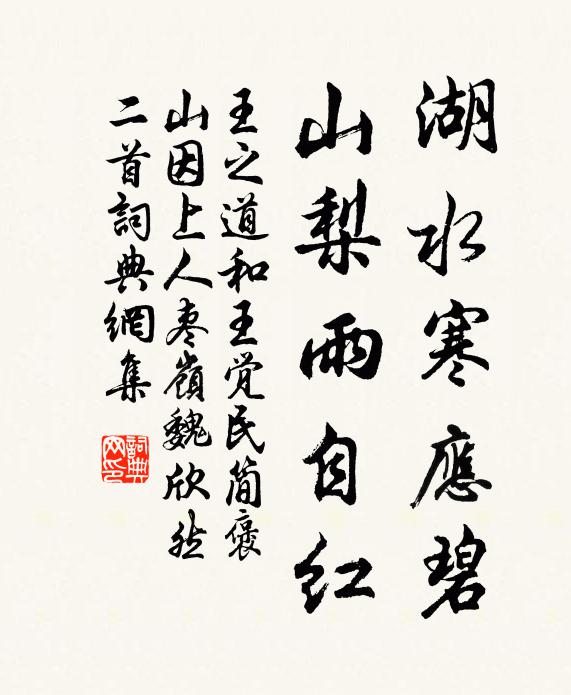 湖水寒應碧
山梨雨自紅
王之道和王觉民简褒
山因上人枣嶺魏欣然
二首詞典網集
詞典网印